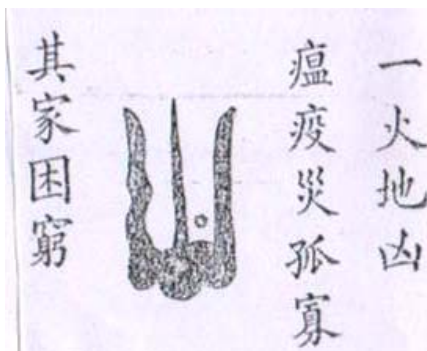 一火地凶
瘟疫災孤寡
其家困窮